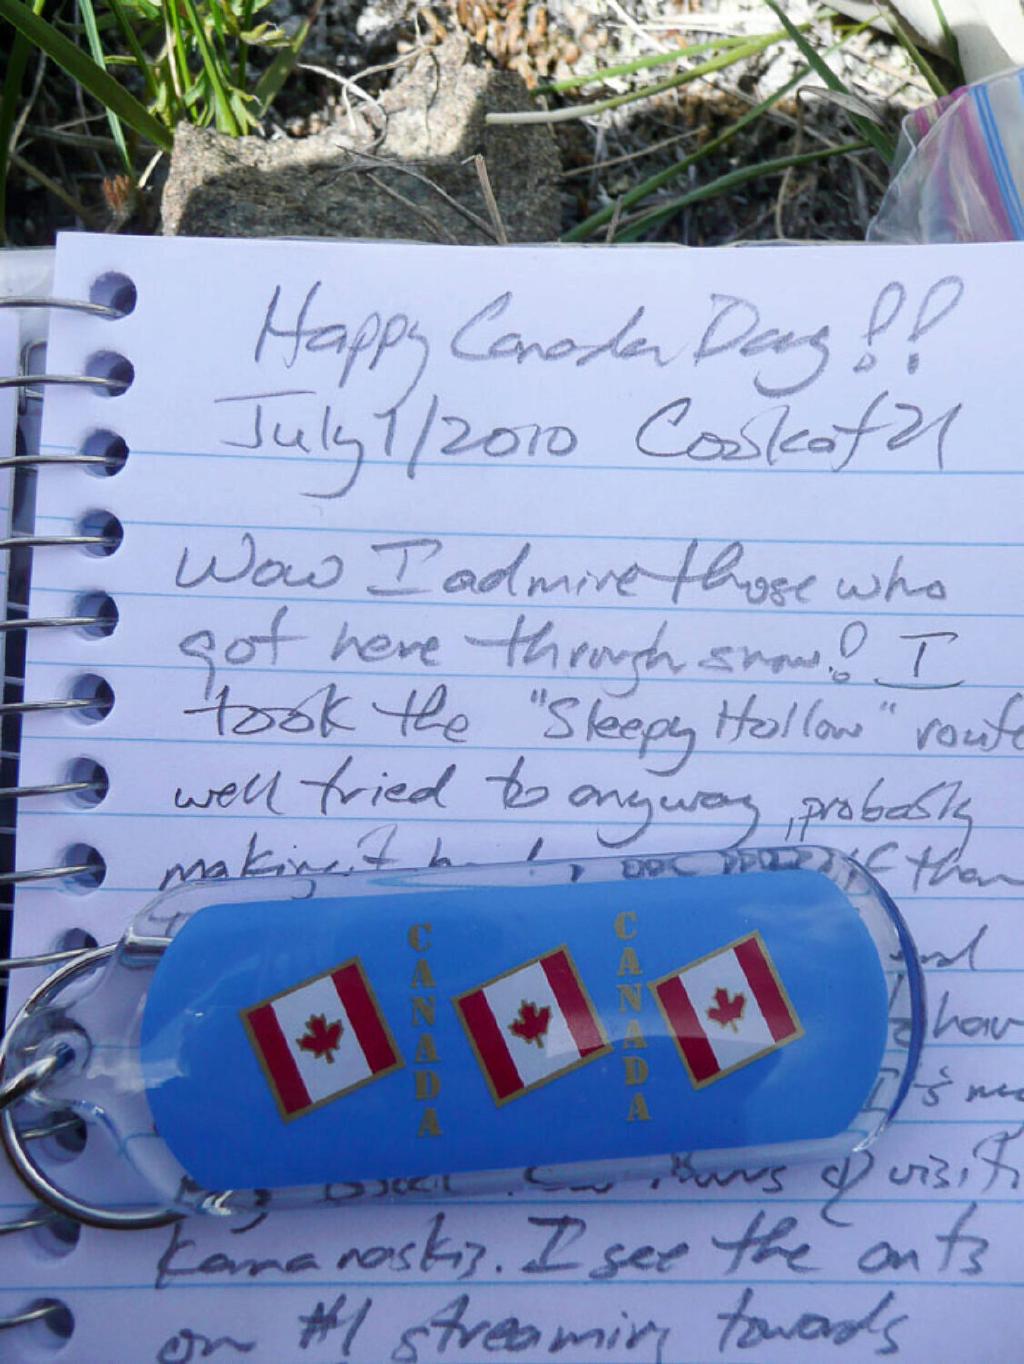 Happy Canada Day!!
July 1/2010 Cosskof 21
Wow I admire those who
got here through snow! I
took the "Sleepy Hollow" route
well tried to anyway, probably
making it than
CANADA
CANADA
hav
It's
of visit
Kananaskis. I see the ants
on #1 streaming towards